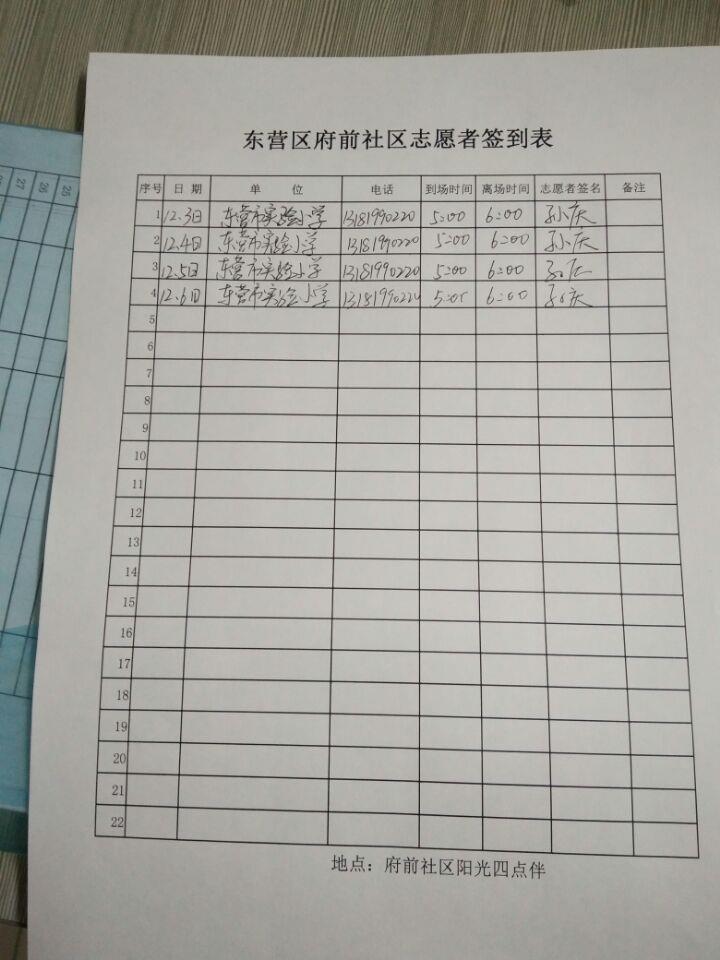 东营区府前社区志愿者签到表
序号 日 期 单 位 电话 到场时间 离场时间 志愿者签名 备注
1 12.3日 东营市实验小学 13181990220 5:00 6:00 孙庆
2 12.4日 东营市实验小学 13181990220 5:00 6:00 孙庆
3 12.5日 东营市实验小学 13181990220 5:00 6:00 孙庆
4 12.6日 东营市实验小学 13181990220 5:00 6:00 孙庆
5
6
7
8
9
10
11
12
13
14
15
16
17
18
19
20
21
22
地点：府前社区阳光四点伴
25
26
27